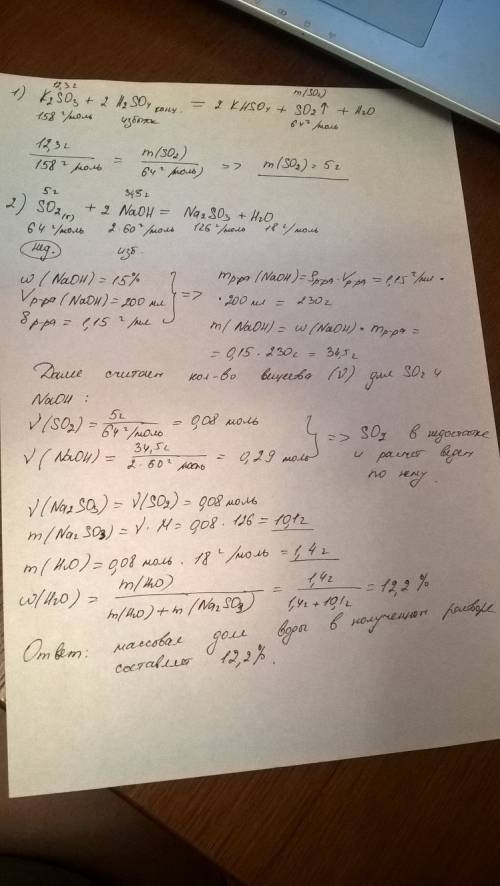 12,3г m(SO₂)
1) K₂SO₃ + 2 H₂SO₄ конц. = 2 KHSO₄ + SO₂↑ + H₂O
158 г/моль избыток 64 г/моль
12,3г / 158 г/моль = m(SO₂) / 64 г/моль) => m(SO₂) = 5г
5г 34,5г
2) SO₂(г) + 2 NaOH = Na₂SO₃ + H₂O
64 г/моль 2·60 г/моль 126 г/моль 18 г/моль
нед. изб.
ω(NaOH) = 15%
Vр-ра(NaOH) = 200 мл
ρр-ра = 1,15 г/мл
=> mр-ра(NaOH) = ρр-ра · Vр-ра = 1,15 г/мл ·
· 200 мл = 230г
m(NaOH) = ω(NaOH) · mр-ра =
= 0,15 · 230г = 34,5г
Далее считаем кол-во вещества (ν) для SO₂ и
NaOH:
ν(SO₂) = 5г / 64 г/моль = 0,08 моль
ν(NaOH) = 34,5г / 2·60 г/моль = 0,29 моль
=> SO₂ в недостатке
и расчет ведем
по нему.
ν(Na₂SO₃) = ν(SO₂) = 0,08 моль
m(Na₂SO₃) = ν · M = 0,08 · 126 = 10,1г
m(H₂O) = 0,08 моль · 18 г/моль = 1,4г
ω(H₂O) = m(H₂O) / m(H₂O) + m(Na₂SO₃) = 1,4г / 1,4г + 10,1г = 12,2 %
Ответ: массовая доля воды в полученном растворе
составляет 12,2%.